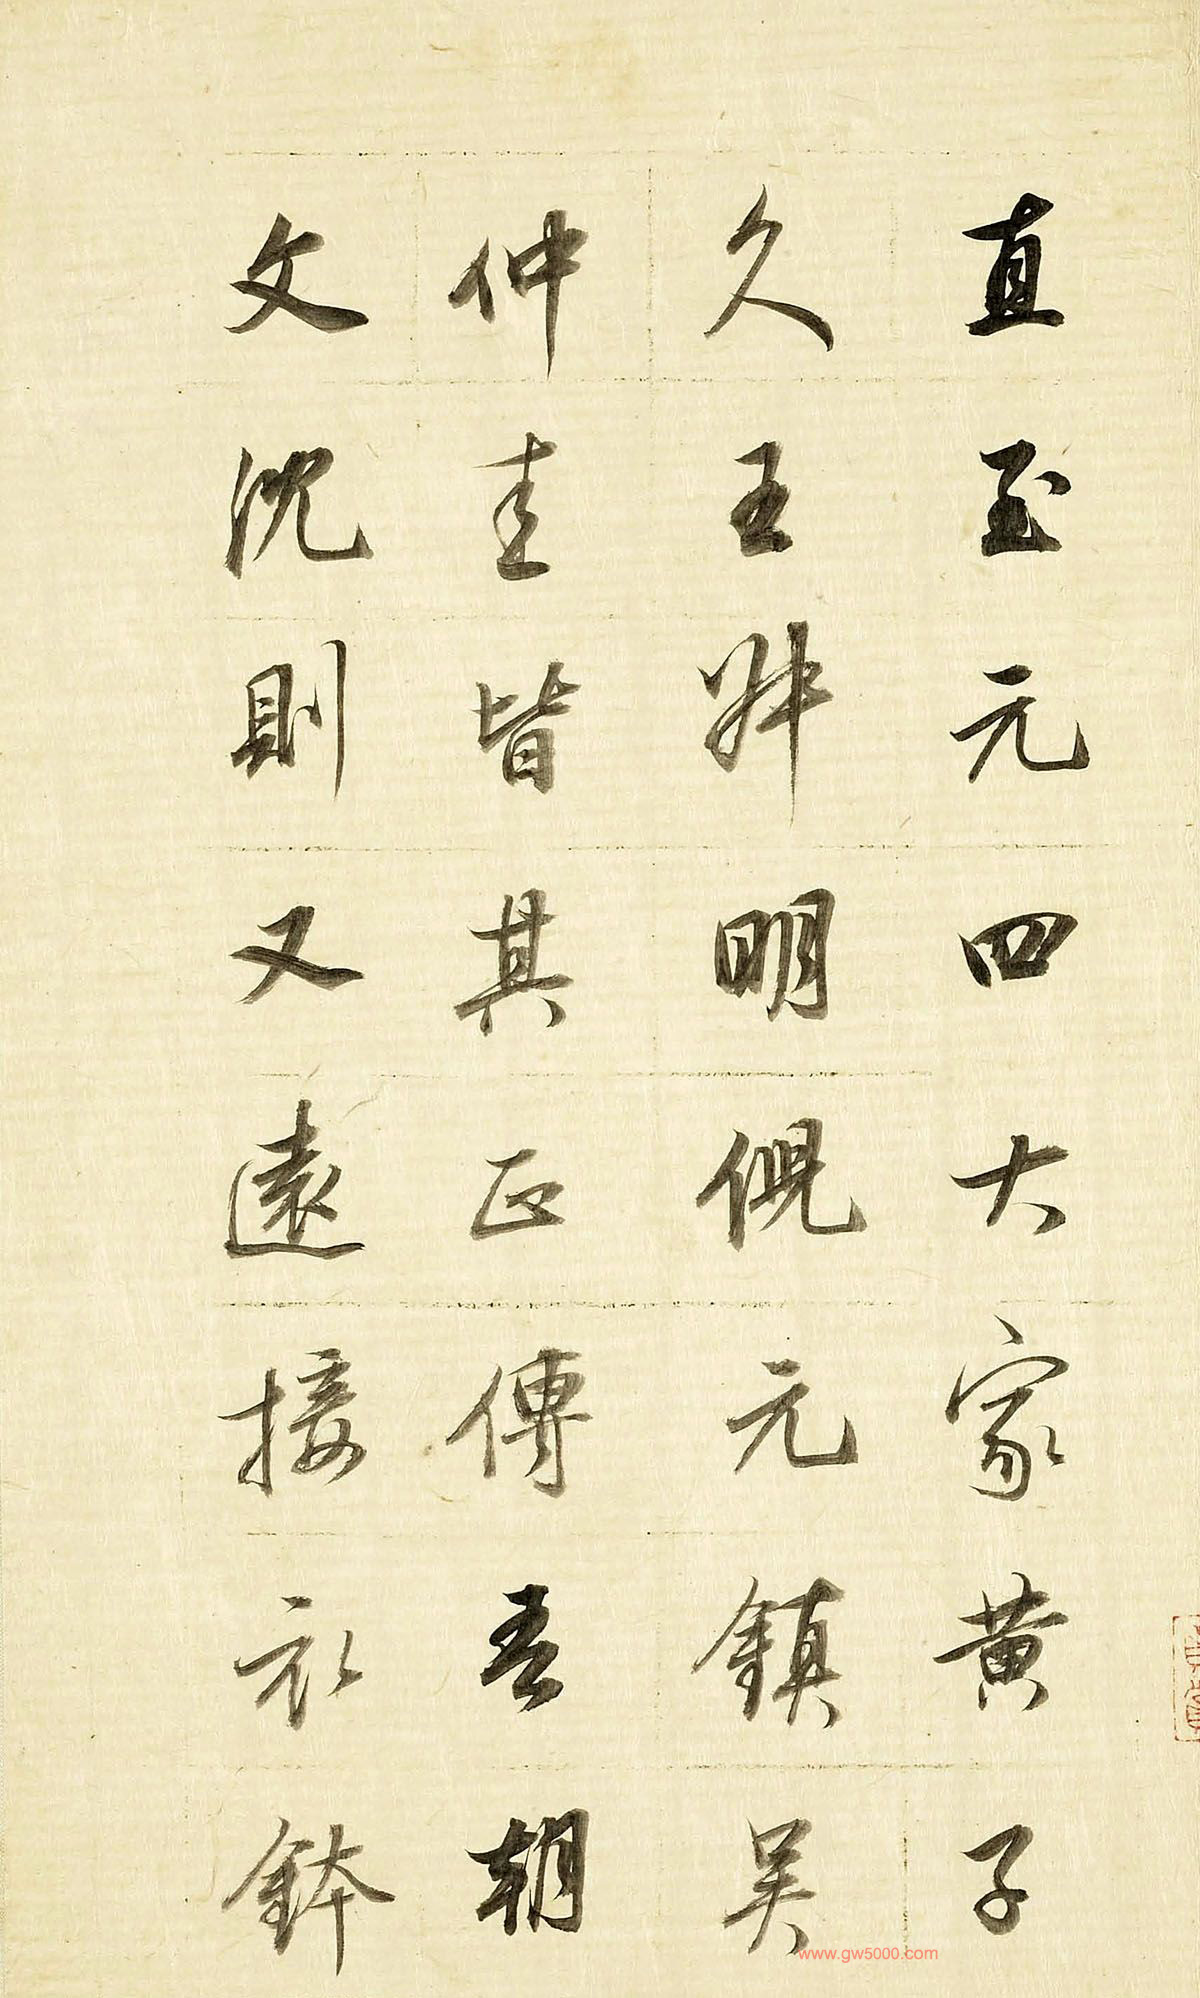 直至元四大家黄子
久王叔明倪元鎮吴
仲圭皆其正傳吾朝
文沈則又遠接衣鉢
www.gw5000.com